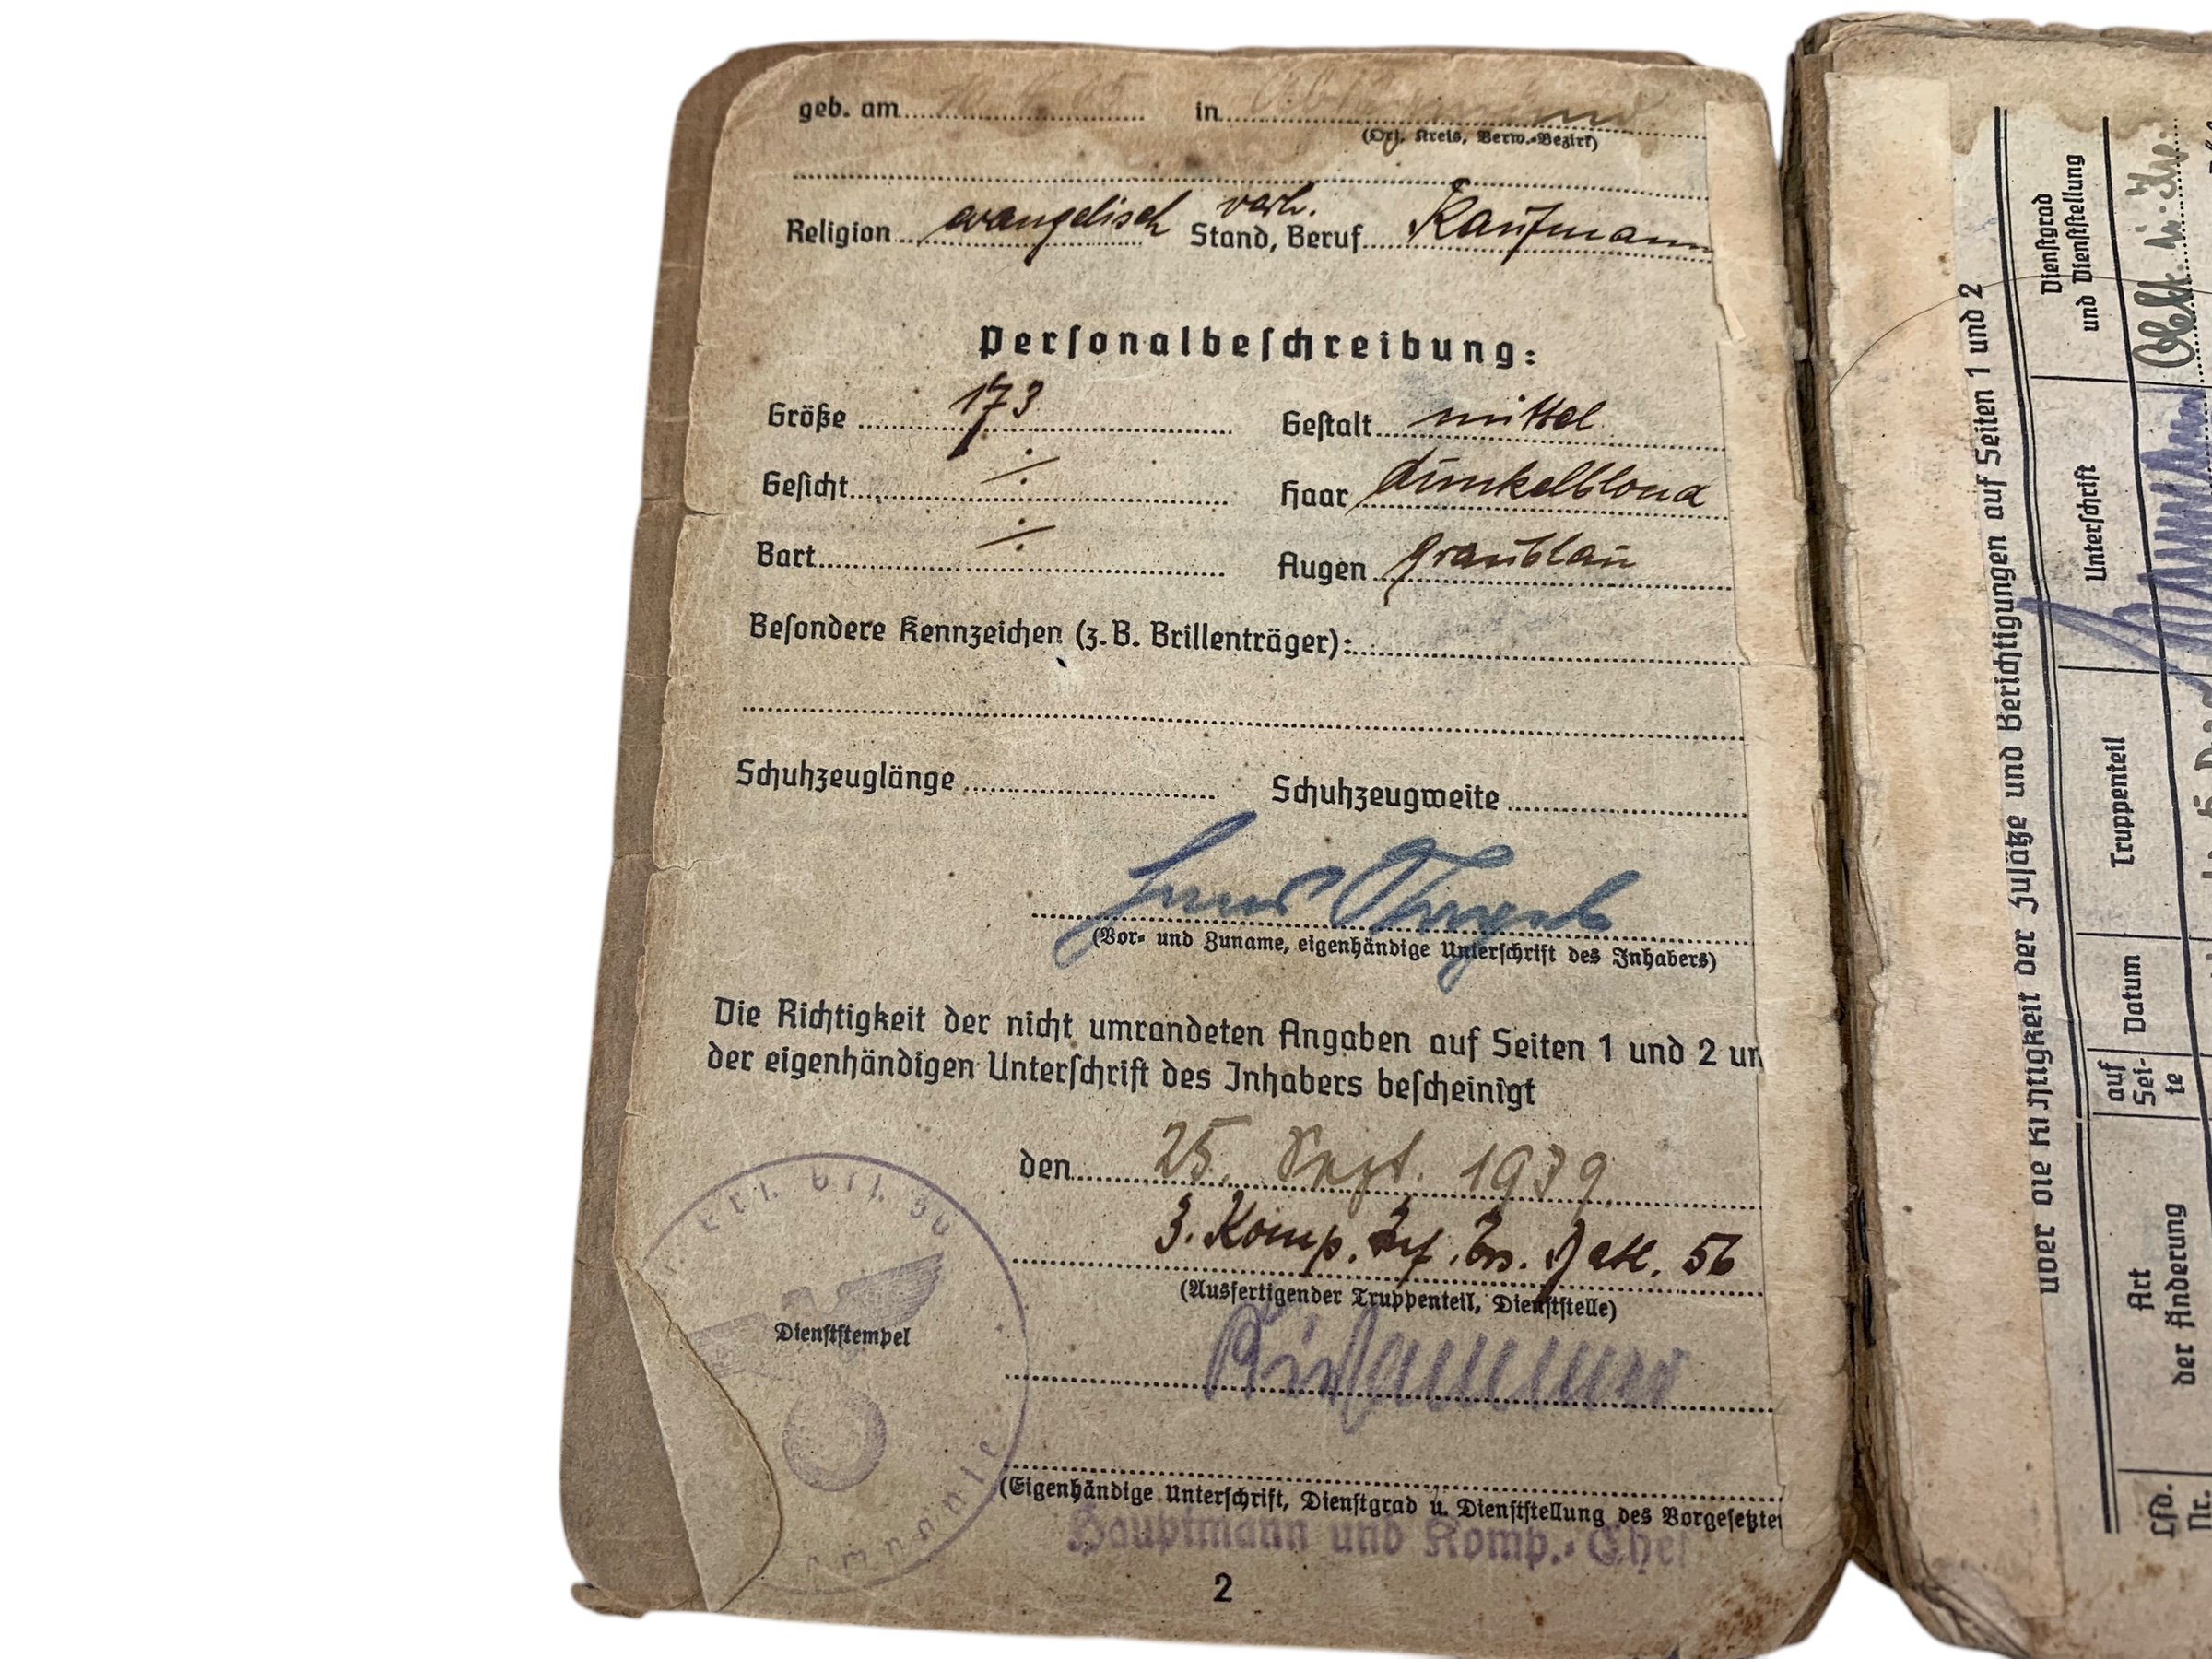 geb. am in
(Ort, Kreis, Verw.-Bezirk)
verh.
Religion evangelisch Stand, Beruf Kaufmann
Personalbeschreibung:
Größe 173 Gestalt mittel
Gesicht ÷ Haar dunkelblond
Bart ÷ Augen graublau
Besondere Kennzeichen (z. B. Brillenträger):
Schuhzeuglänge Schuhzeugweite
Hans
(Vor- und Zuname, eigenhändige Unterschrift des Inhabers)
Die Richtigkeit der nicht umrandeten Angaben auf Seiten 1 und 2 un
der eigenhändigen Unterschrift des Inhabers bescheinigt
den 25. Sept. 1939.
3. Komp. Inf. Ers. Batl. 56
(Ausfertigender Truppenteil, Dienststelle)
Dienststempel
(Eigenhändige Unterschrift, Dienstgrad u. Dienststellung des Vorgesetzte
Hauptmann und Komp.-Chef
2
über die Richtigkeit der Zusätze und Berichtigungen auf Seiten 1 und 2
Lfd. Nr.
Art der Änderung
auf Sei-te
Datum
Truppenteil
Unterschrift
Dienstgrad und Dienststellung